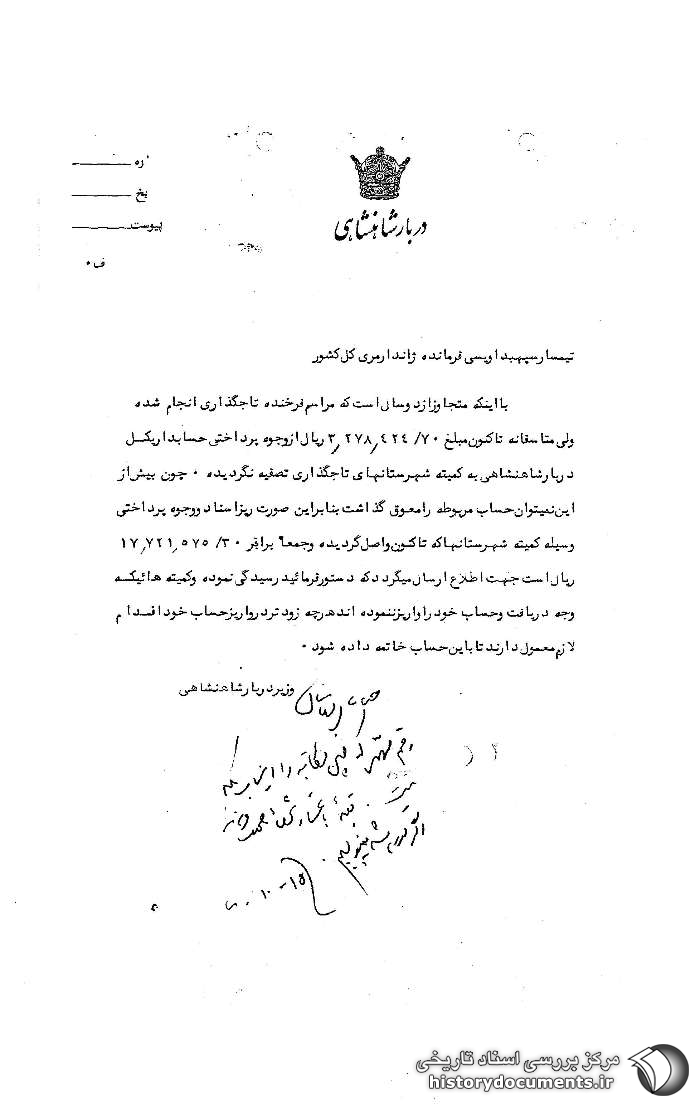 اره
یخ
پیوست
دربار شاهنشاهی
ف.
تیمسار سپهبد اویسی فرمانده ژاندارمری کل کشور
با اینکه متجاوز از دو سال است که مراسم فرخنده تاجگذاری انجام شده
ولی متاسفانه تاکنون مبلغ ۳٫۲۷۸٫۴۲۴/۷۰ ریال از وجوه پرداختی حسابداریکل
دربار شاهنشاهی به کمیته شهرستانهای تاجگذاری تصفیه نگردیده ۰ چون بیش از
این نمیتوان حساب مربوطه را معوق گذاشت بنابراین صورت ریز اسناد و وجوه پرداختی
وسیله کمیته شهرستانها که تاکنون واصل گردیده و جمعا" برابر ۱۷٫۷۲۱٫۵۷۵/۳۰
ریال است جهت اطلاع ارسال میگردد که دستور فرمائید رسیدگی نموده و کمیته هائیکه
وجه دریافت و حساب خود را واریز ننموده اند هرچه زودتر در واریز حساب خود اقدام
لازم معمول دارند تا باین حساب خاتمه داده شود ۰
وزیر دربار شاهنشاهی
۱۵-۱۰
مرکز بررسی اسناد تاریخی
historydocuments.ir